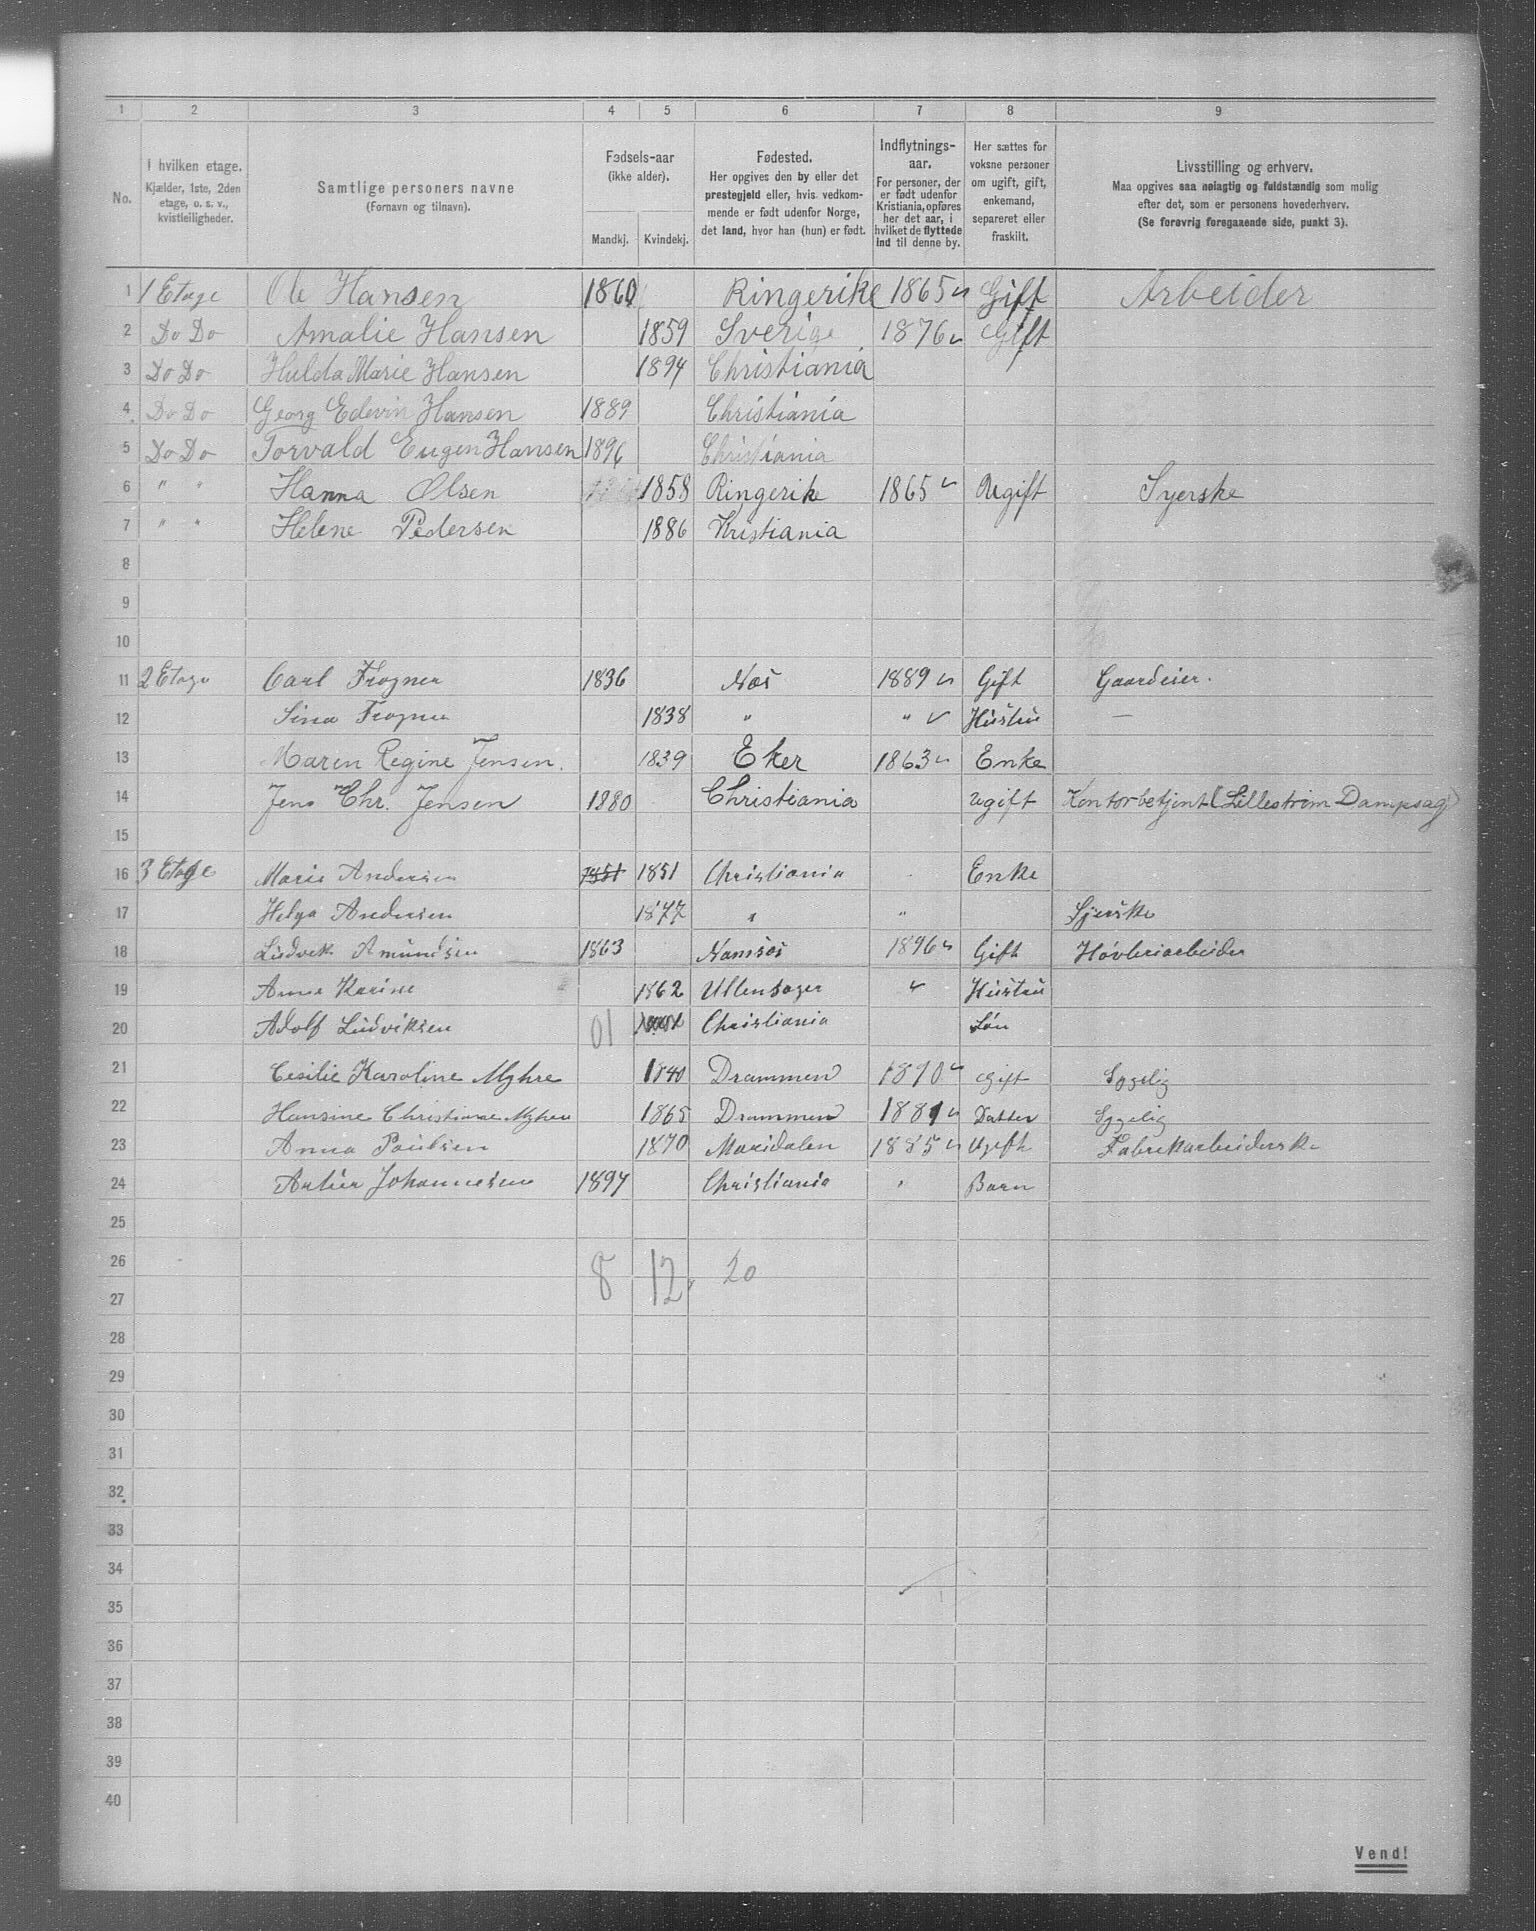 1 2 3 4 5 6 7 8 9
No.
I hvilken etage.
Kjælder, 1ste, 2den
etage, o. s. v.,
kvistleiligheder.
Samtlige personers navne
(Fornavn og tilnavn).
Fødsels-aar
(ikke alder).
Mandkj. Kvindekj.
Fødested.
Her opgives den by eller det
prestegjeld eller, hvis vedkom-
mende er født udenfor Norge,
det land, hvor han (hun) er født.
Indflytnings-
aar.
For personer, der
er født udenfor
Kristiania, opføres
her det aar, i
hvilket de flyttede
ind til denne by.
Her sættes for
voksne personer
om ugift, gift,
enkemand,
separeret eller
fraskilt.
Livsstilling og erhverv.
Maa opgives saa nøiagtig og fuldstændig som mulig
efter det, som er personens hovederhverv.
(Se forøvrig foregaaende side, punkt 3).
1 1 Etage Ole Hansen 1860 Ringerike 1865 Gift Arbeider
2 Do Do Amalie Hansen 1859 Sverige 1876 Gift
3 Do Do Hulda Marie Hansen 1894 Christiania
4 Do Do Georg Edevin Hansen 1889 Christiania
5 Do Do Torvald Eugen Hansen 1896 Christiania
6 " " Hanna Olsen 1858 Ringerike 1865 Ugift Syerske
7 " " Helene Pedersen 1886 Kristiania
8
9
10
11 2 Etage Carl Frogner 1836 Nes 1889 Gift Gaardeier.
12 Sina Frogner 1838 " " Hustru —
13 Maren Regine Jensen. 1839 Eker 1863 Enke
14 Jens Chr. Jensen 1880 Christiania ugift Kontorbetjent (Lillestrøm Dampsag)
15
16 3 Etage Marie Andersen 1851 1851 Christiania Enke
17 Helga Andersen 1877 " " Sjerske
18 Ludvik Amundsen 1863 Namsos 1896 Gift Høvleriarbeider
19 Anna Karine 1862 Ullensager Hustru
20 Adolf Ludviksen 01 Christiania Søn
21 Cesilie Karoline Myhre 1840 Drammen 1890 gift Sygelig
22 Hansine Christiane Myhre 1865 Drammen 1881 Datter Sygelig
23 Anna Paulsen 1870 Maridalen 1885 Ugift Fabrikarbeiderske
24 Artur Johannesen 1897 Christiania " Barn
25
26 8 12 20
27
28
29
30
31
32
33
34
35
36
37
38
39
40
Vend!